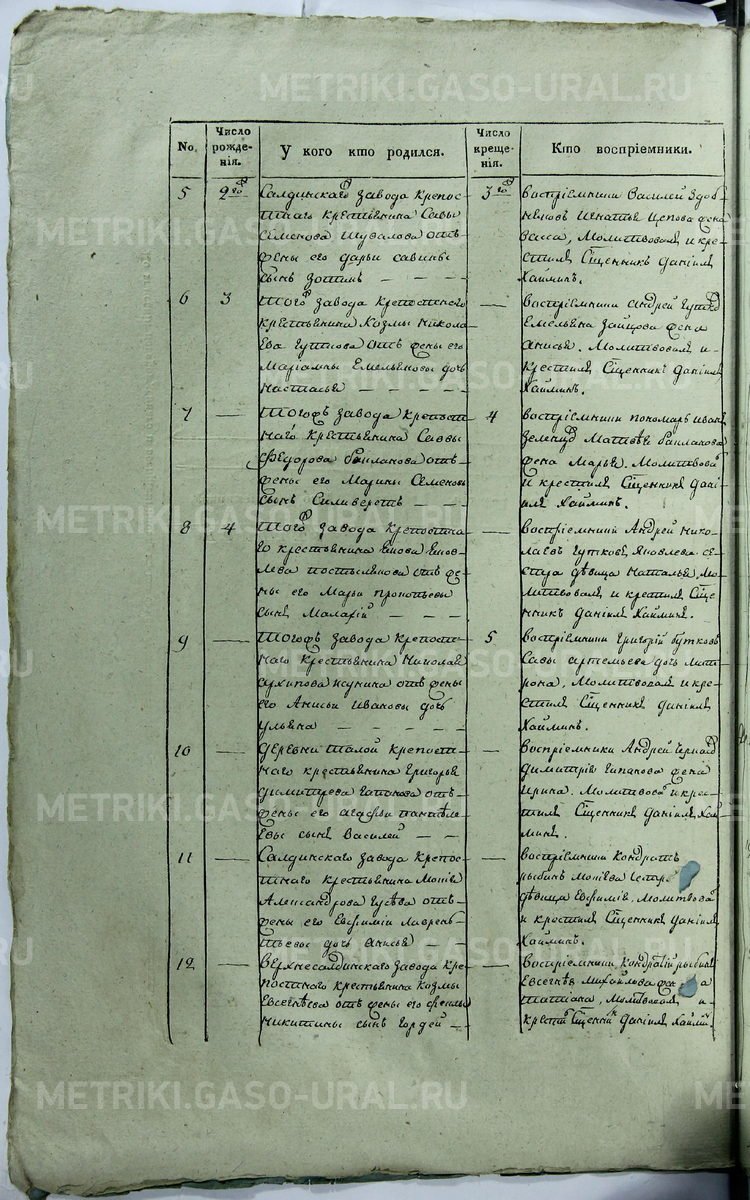 METRIKI.GASO-URAL.RU
No.
Число рожде-нія.
У кого кто родился.
Число креще-нія.
Кто воспріемники.
5
2го
Салдинскаго завода крепос
тнаго крестьянина Савы
Семенова Шувалова отъ
жены его Дарьи Савины
сынъ Зотикъ
3го
Воспріемники Василей
Игнатье жена
Васса, Молитвовалъ и кре
стилъ Сщенникъ Даніилъ
Хайминъ.
6
3
тогожъ завода крепостнаго
крестьянина Козмы Никола
ева отъ жены его
Маріамны Емельяновы дочь
Настасья
Воспріемники Андрей
Емельяна Зайцова жена
Анисья. Молитвовалъ и
крестилъ Сщенникъ Даніилъ
Хайминъ.
7
Тогожъ завода крепост
наго крестьянина Саввы
Федорова отъ
жены его Марины Семеновы
сынъ Силиверстъ
4
Воспріемники пономарь Иванъ
Матвѣя
жена Марья. Молитвова
и крестилъ Сщенникъ Дані
илъ Хайминъ.
8
4
Тогожъ завода крепостна
го крестьянина Якова Яков
лева отъ же
ны его Марьи Прокопьевы
сынъ Малахій
Воспріемники Андрей Нико
лаевъ Гутковъ, Яковлева се
стра дѣвица Наталья, мо
литвовалъ и крестилъ Сще
нникъ Даніилъ Хайминъ.
9
Тогожъ завода крепост
наго крестьянина Николая
Архипова отъ жены
его Анисьи Ивановы дочь
Ульяна
5
Воспріемники Григорій Бутковъ
Савы Артемьева дочь Мат
рона, Молитвовалъ и кре
стилъ Сщенникъ Даніилъ
Хайминъ.
10
Деревни Талой крепост
наго крестьянина Григорья
Димитрева Гапонова отъ
жены его Агафьи Пантеле
евы сынъ Василей
Воспріемники Андрей
Димитрія Гапонова жена
Ирина. Молитвова и крес
тилъ Сщенникъ Даніилъ Хай
минъ.
11
Салдинскаго завода крепос
тнаго крестьянина Мокія
Александрова Гусева отъ
жены его Евфиміи Лаврень
тьевы дочь Анисья
Воспріемники Кондратъ
Рыбинъ Мокіева сестра
дѣвица Евфимія, Молитвова
и крестилъ Сщенникъ Даніилъ
Хайминъ.
12
Верхнесалдинскаго завода кре
постнаго крестьянина Козмы
Евсегнѣева отъ жены его Феклы
Никитины сынъ Гордей
Воспріемники, Кондратій Рыбинъ
Евсегнѣя Михайлова жена
Татіана, Молитвовалъ и
крестилъ Сщенникъ Даніилъ Хаймин